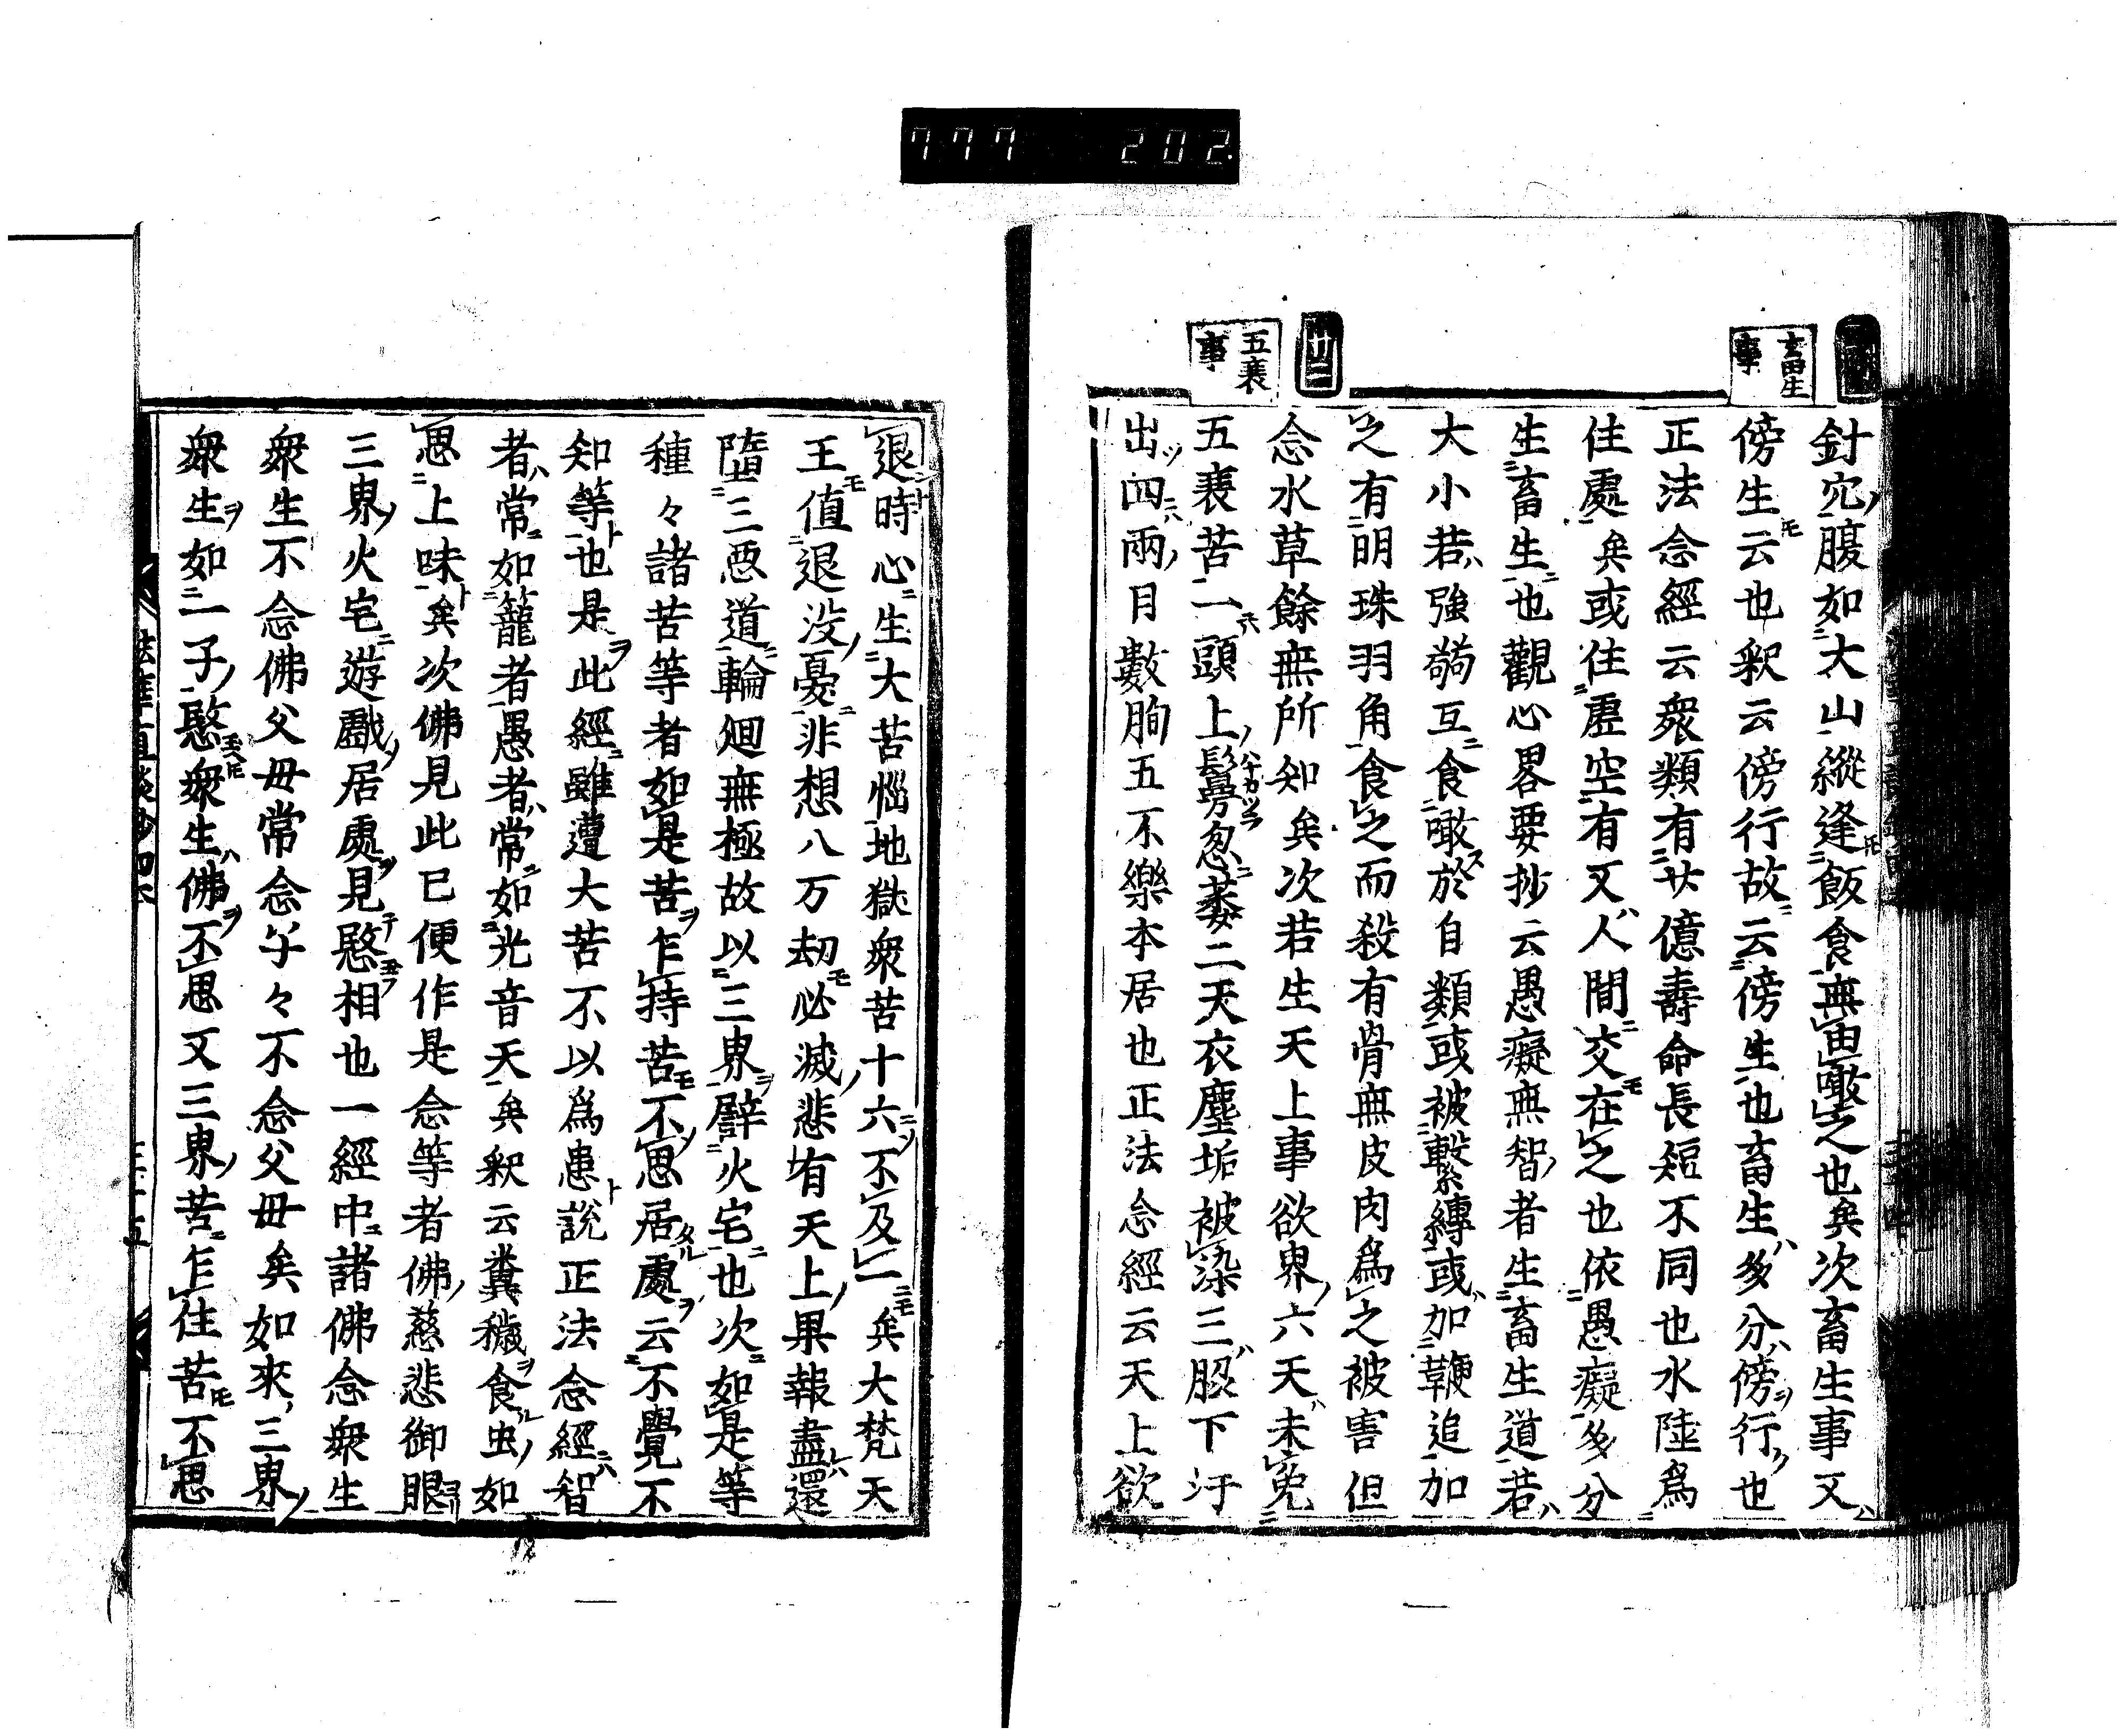 777 202
畜生事
廿二
五衰事
針穴ノ腹如大山縱逢飯食無由噉之也矣次畜生事又
傍生云也釈云傍行故云傍生也畜生ハ多分ハ傍行也
正法念經云衆類有廿億壽命長短不同也水陸爲
住處矣或住虛空有又人間交在之也依愚癡多分
生畜生也觀心畧要抄云愚癡無智者生畜生道若
大小若強弱互食噉於自類或被繫縛或加鞭追加
之有明珠羽角食之而殺有骨無皮肉爲之被害但
念水草餘無所知矣次若生天上事欲界六天未免
五衰苦一頭上鬘忽萎二天衣塵垢被染三腋下汗
出四兩目數眴五不樂本居也正法念經云天上欲
退時心生大苦惱地獄衆苦十六不及一矣大梵天
王值退没憂非想八万劫必滅悲有天上果報盡還
墮三惡道輪廻無極故以三界譬火宅也次如是等
種々諸苦等者如是苦乍持苦不思居處云不覺不
知等也是此經雖遭大苦不以爲患説正法念經智
者常如籠者愚者常如光音天矣釈云糞穢食虫如
思上味矣次佛見此已便作是念等者佛慈悲御眼
三界火宅遊戲居處見愍相也一經中諸佛念衆生
衆生不念佛父母常念子々不念父母矣如來三界
衆生如一子愍衆生佛不思又三界苦乍住苦不思
法華直談鈔四本 三十五